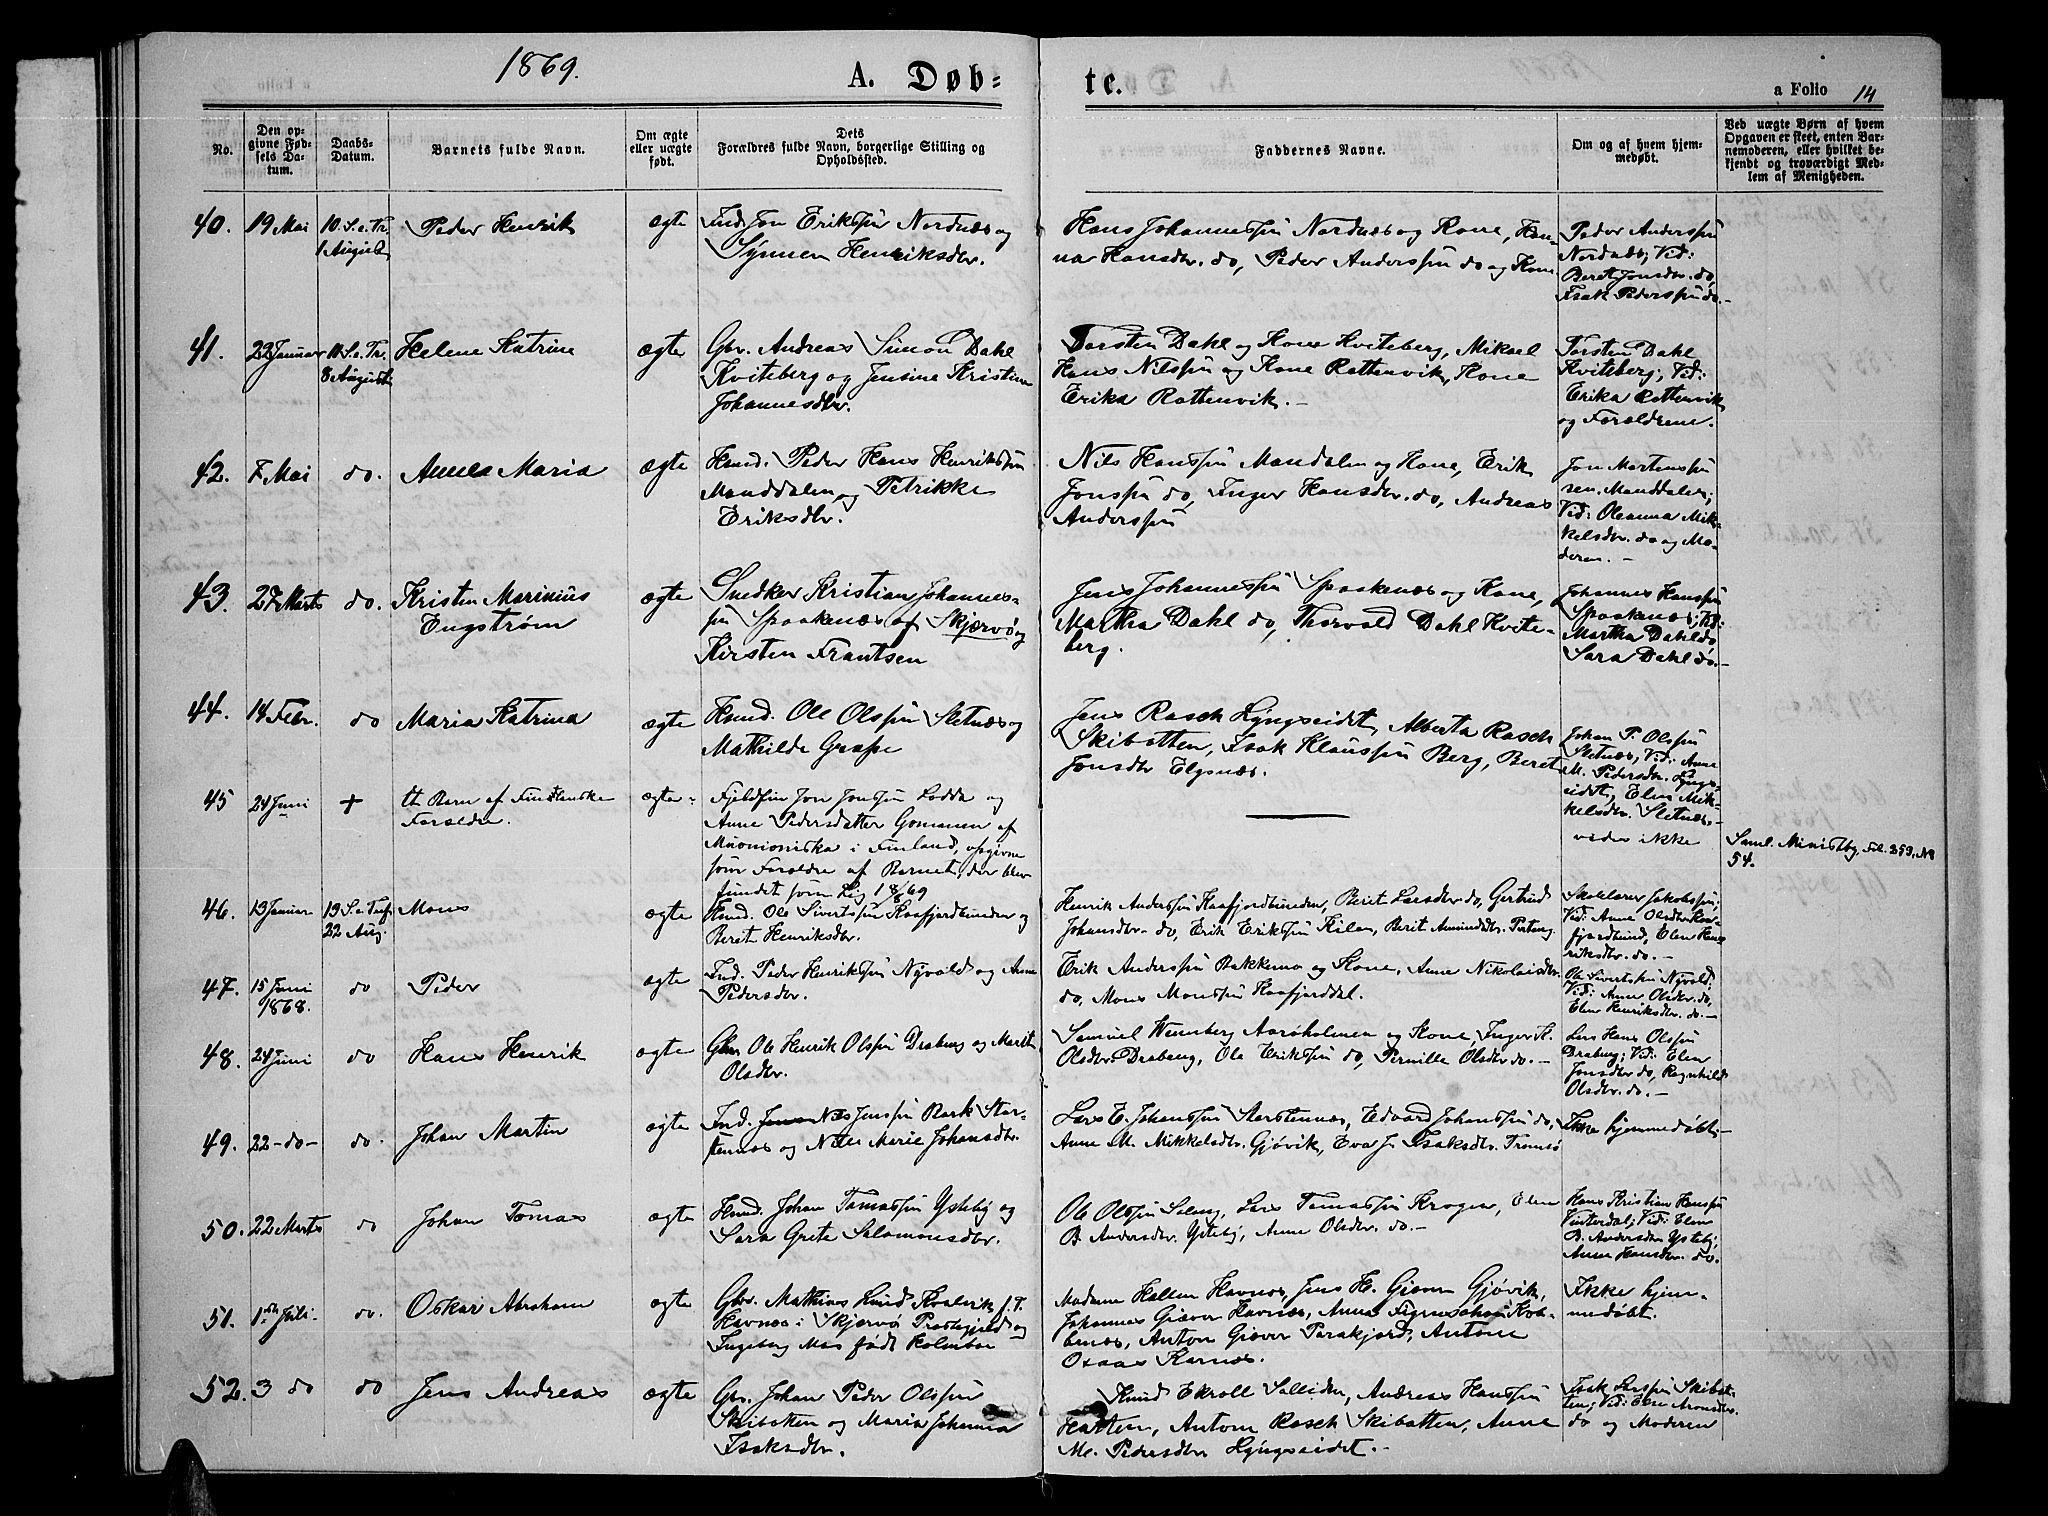 1869.
A. Døb-
te.
a Folio 14
No.
Den op-
givne Fød-
sels Da-
tum.
Daabs-
Datum.
Barnets fulde Navn.
Om ægte
eller uægte
født.
Dets
Forældres fulde Navn, borgerlige Stilling og
Opholdssted.
Faddernes Navne.
Om og af hvem hjem-
medøbt.
Ved uægte Børn af hvem
Opgaven er skeet, enten Bar-
nemoderen, eller hvilket be-
kjendt og troværdigt Med-
lem af Menigheden.
40. 19 Mai
10. S. e. Tr.
1 August
Peder Henrik
ægte
Ind. Jon Erikssøn Nordnæs og
Synnev Henriksdtr.
Hans Johannessøn Nordnæs og Kone, Han-
na Hansdtr. do, Peder Anderssøn do og Kone
Peder Anderssøn
Nordnæs; Vid:
Beret Jonsdtr. do,
Isak Pederssøn do.-
41. 22 Januar
11. S. e. Tr.
8 August
Helene Katrine
ægte
Gbr. Andreas Simon Dahl
Kviteberg og Jensine Kristine
Johannesdtr.
Torsten Dahl og Kone Kviteberg, Mikael
Hans Nilssøn og Kone Rottenvik, Kone
Erika Rottenvik. -
Torsten Dahl
Kviteberg; Vid:
Erika Rottenvik
og Forældrene.
42. 7 Mai
do.
Annea Maria
ægte
Hmd. Peder Hans Henrikssøn
Manddalen og Petrikke
Eriksdtr.
Nils Hanssøn Mandalen og Kone, Erik
Jonssøn do, Inger Hansdtr. do, Andreas
Anderssøn
Jon Martenssøn
sen. Manddalen;
Vid: Oleanna Mik-
kelsdtr. do og Mo-
deren. -
43. 27 Marts
do.
Kristen Marinius
Engstrøm
ægte
Snedker Kristian Johannes-
søn Spaakenæs af Skjervø og
Kirsten Frantsen
Jens Johannessøn Spaakenæs og Kone,
Martha Dahl do, Thorvald Dahl Kvite-
berg.
Johannes Hanssøn
Spaakenæs; Vid:
Martha Dahl do,
Sara Dahl do.-
44. 14 Febr.
do
Maria Katrina
ægte
Hmd. Ole Olssøn Sletnæs og
Mathilde Grape
Jens Rasch Lyngseidet, Alberta Rasch
Skibotten, Isak Klaussøn Berg, Beret
Jonsdtr Elgsnæs.
Johan P. Olssøn
Sletnæs, Vid: Anne
M. Pedersdtr. Lyngs-
eidet, Elen Mik-
kelsdtr. Sletnæs.-
45 24 Juni
+
Et Barn af Finlanske
Forældre.
ægte-
Fjeldfin Jon Jonssøn Lodda og
Anne Pedersdatter Gomanen af
Muonioniska i Finland, opgivne
som Forældre af Barnet, der blev
fundet som Lig 1 8/69
vides ikke
Saml. Ministbg. Fol. 353, No
54.
46. 13 Januar
13 S. e. Tref.
22 Aug.
Mons
ægte
Hmd. Ole Sivertssøn Kaafjordbunden og
Beret Henriksdtr.
Henrik Anderssøn Kaafjordbunden, Berit Larsdtr do, Gertrud
Johansdtr. do, Erik Erikssøn Kilen, Berit Amundsdtr. Pertung.
Skolelærer Jakobssøn;
Vid: Anne Olsdtr Kaa-
fjordbund, Elen Hen-
riksdtr. do.-
47. 15 Juni
1868.
do
Peder
ægte
Ind. Peder Henrikssøn Nyvold og Anne
Pedersdtr.
Erik Anderssøn Bakkemo og Kone, Anne Nikolaisdtr.
do, Mons Monssøn Kaafjorddal.
Ole Sivertssøn Nyvold;
Vid: Anne Olsdtr. do,
Elen Henriksdtr. do.-
48. 24 Juni
do
Hans Henrik
ægte
Gbr Ole Henrik Olssøn Drabeng og Marit
Olsdtr.
Samuel Wennberg Aarøholmen og Kone, Inger K.
Olsdtr. Drabeng, Ole Erikssøn do, Pernille Olsdtr. do.-
Lars Hans Olssøn
Drabeng; Vid: Elen
Jonsdtr do, Ragnhild
Olsdtr. do.
49. 22-do-
do.
Johan Martin
ægte
Ind. Nils Jenssøn Bark Stor-
stennæs og Nelle Marie Johansdtr.
Lars E. Johanssøn Storstennæs, Edvard Johanssøn do,
Anne M. Mikkelsdtr. Gjøvik, Eva J. Isaksdtr. Tromsø
Ikke hjemmedøbt.-
50. 22 Marts
do
Johan Tomas
ægte
Hmd. Johan Tomassøn Ysteby og
Sara Grete Salomonsdtr.
Ole Olssøn Seleng, Lars Tomassøn Kroger, Elen
B. Andersdtr. Ysteby, Anne Olsdtr. do.-
Hans Kristian Hanssøn
Vinterdal; Vid: Elen
B. Andersdtr Ysteby,
Anne Hansdtr. do.
51. 1ste Juli
do.
Oskar Abraham
ægte
Gbr. Mathias Lund Kvalvik f. T.
Havnæs i Skjervø Prestegjeld og
Ingeborg Mas født Holmboe
Madame Hallen Havnæs, Jens H. Giæver Gjøvik,
Johannes Giæver Havnæs, Anna Figenschou Kob-
benæs, Anton Giæver Parakjord, Antone
Oxaas Karnæs.
Ikke hjem-
medøbt.
52. 3 do
do
Jens Andreas
ægte
Gbr. Johan Peder Olssøn
Skibotten og Maria Johanna
Isaksdtr.
Knud Ekroll Solliden, Andreas Hanssøn
Hatten, Antone Rasch Skibotten, Anne
M. Pedersdtr Lyngseidet.-
Isak Larssøn Skibot-
ten; Vid: Else Aronsdtr.
do og Moderen